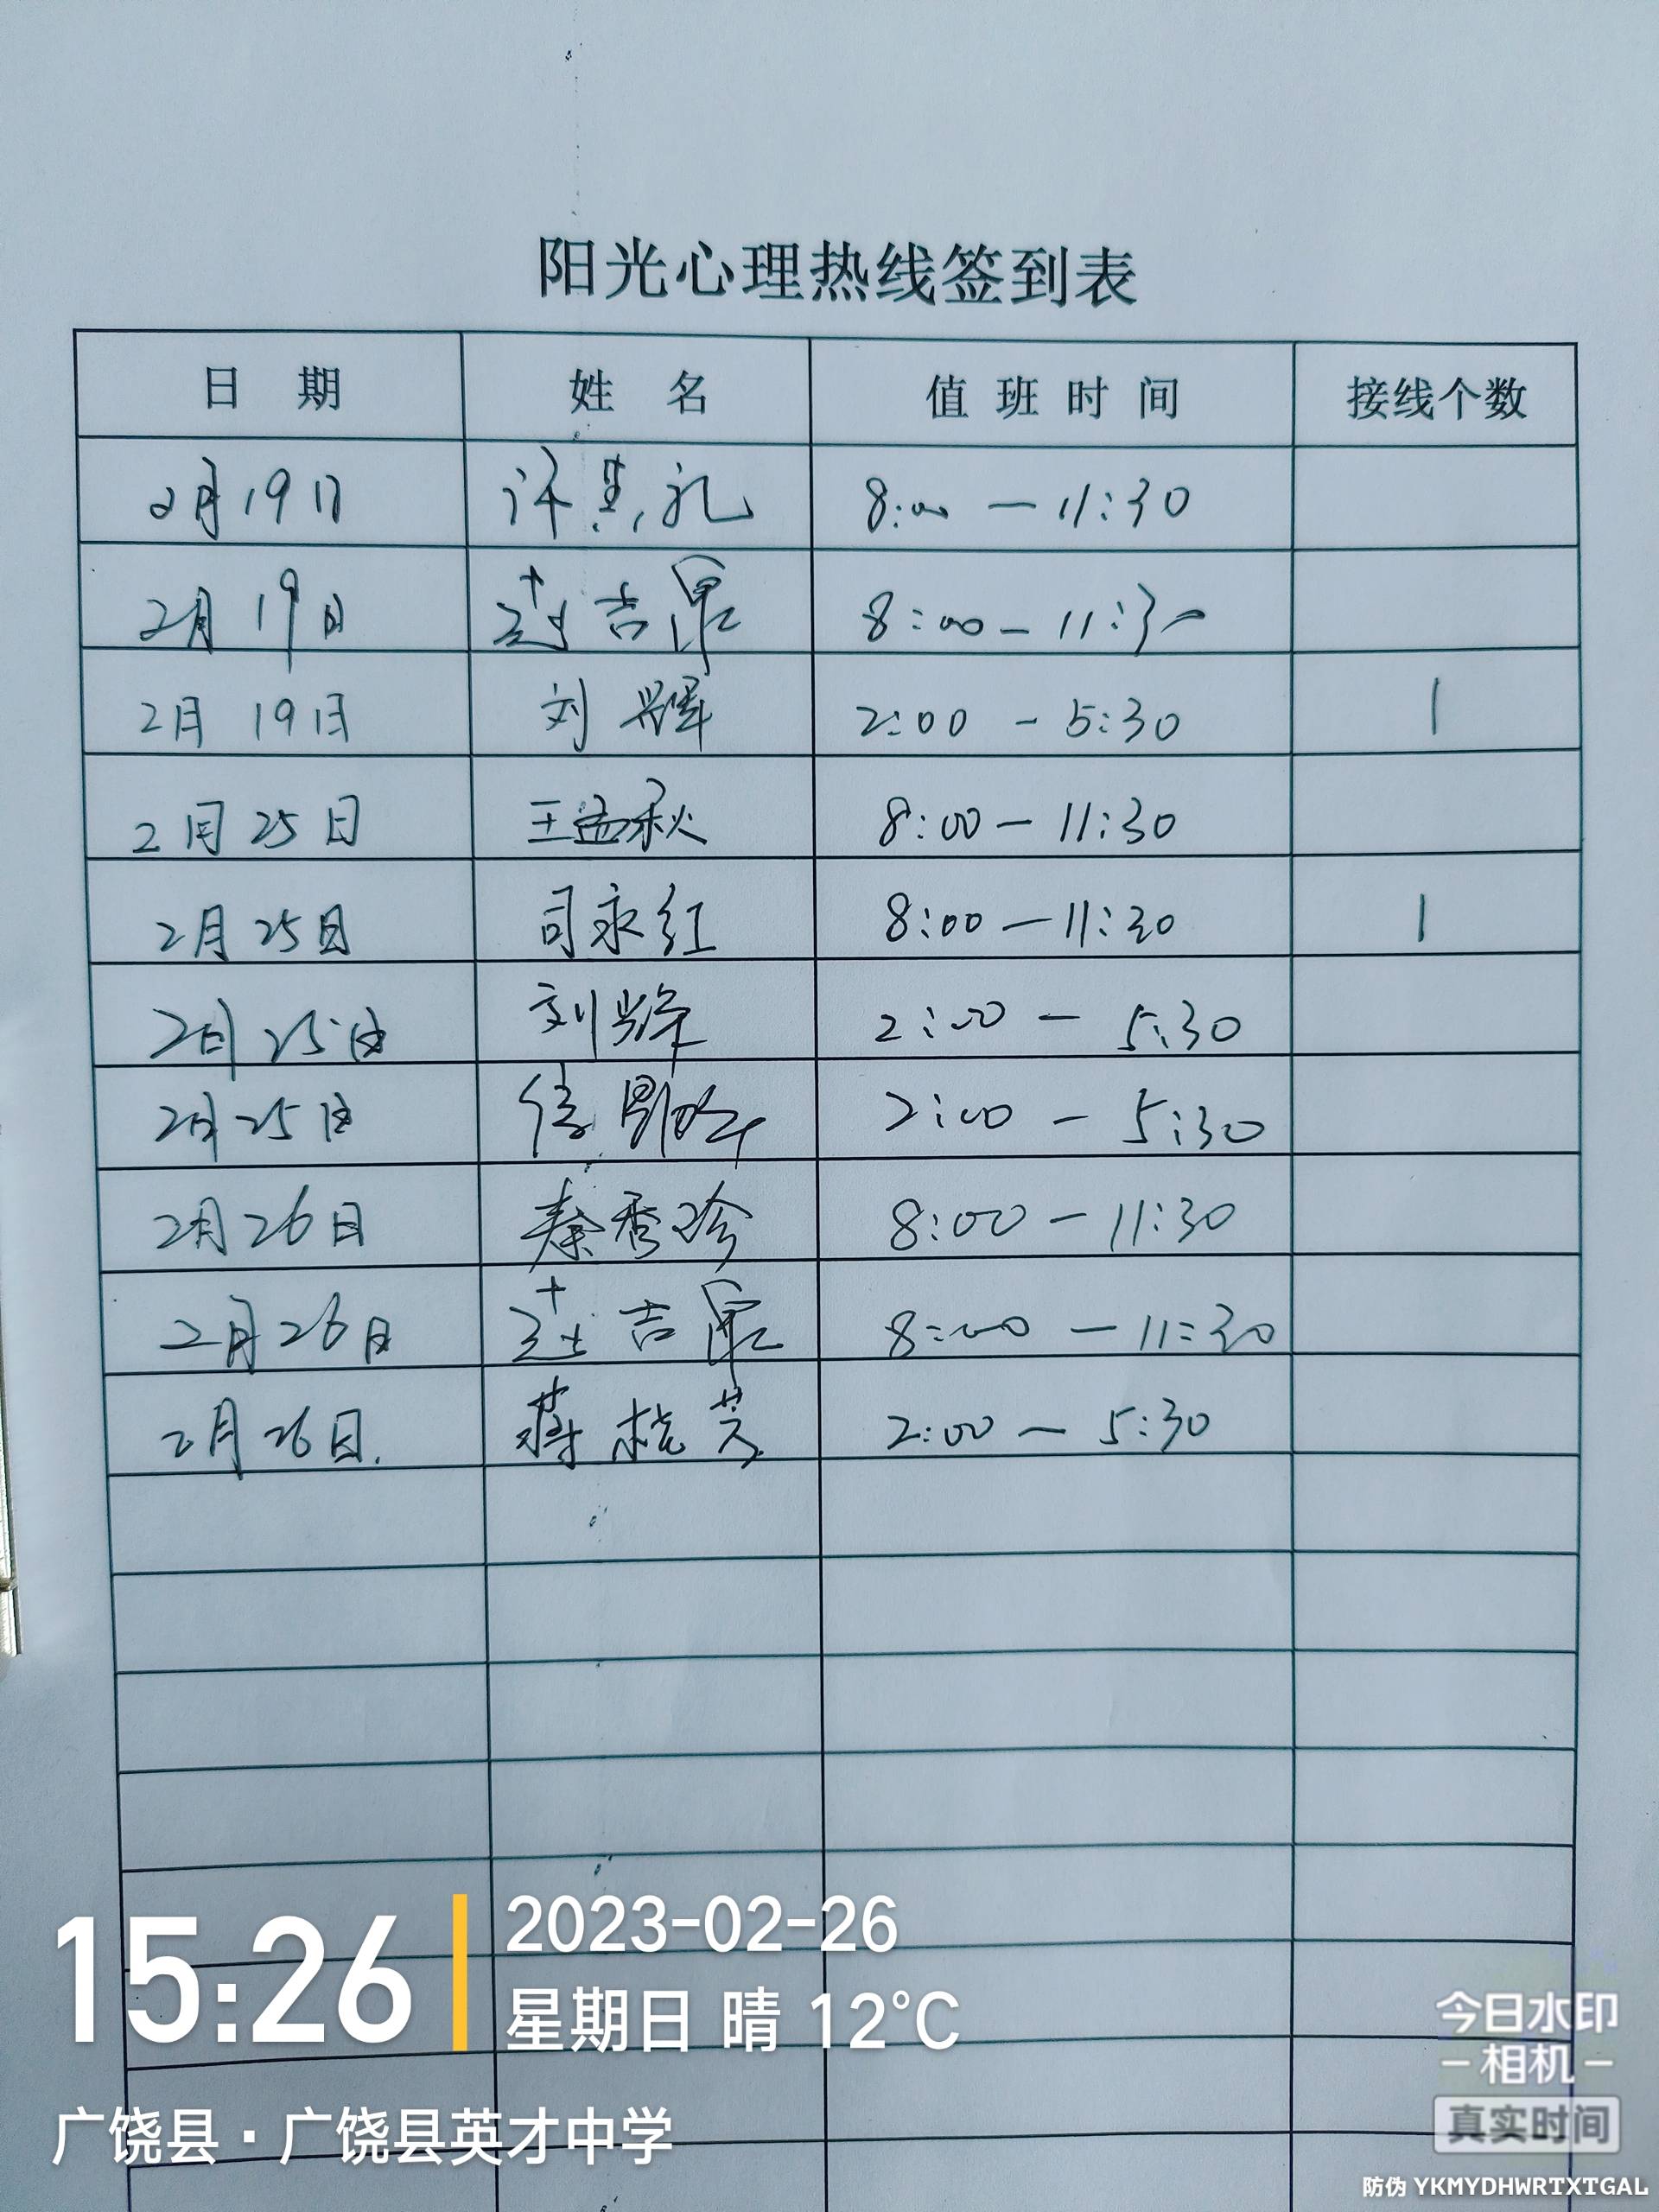 阳光心理热线签到表
日 期 姓 名 值 班 时 间 接线个数
2月19日 许其礼 8:00 — 11:30
2月19日 赵吉 8:00 — 11:30
2月19日 刘兴辉 2:00 - 5:30 1
2月25日 王孟秋 8:00 — 11:30
2月25日 司永红 8:00 — 11:30 1
2月25日 刘兴辉 2:00 — 5:30
2月25日 2:00 — 5:30
2月26日 秦秀珍 8:00 — 11:30
2月26日 赵吉 8:00 — 11:30
2月26日. 蒋桂芝 2:00 — 5:30
15:26
2023-02-26
星期日 晴 12°C
广饶县·广饶县英才中学
今日水印
-相机-
真实时间
防伪 YKMYDHWRTXTGAL